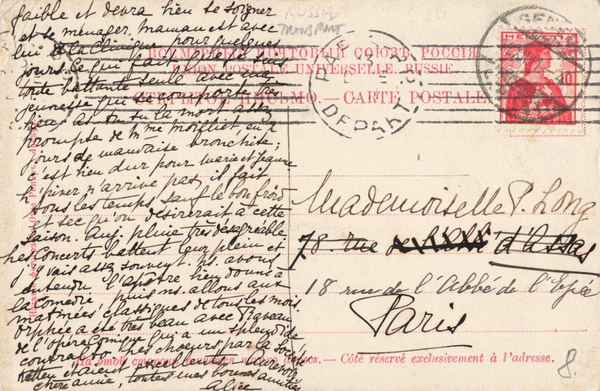 faible et devra bien se soigner
et se ménager. maman est avec
lui à la clinique pour quelques
jours. Ce qui fait que je suis
toute battante seule avec une
jeunesse qui se comporte très
bien. As-tu su la mort assez
prompte de Mme Moilliet en 2
jours de mauvaise bronchite;
c'est bien dur pour Marie et Jeanne
L'hiver n'arrive pas, il fait
tous les temps, sauf le bon froid
sec qu'on désirerait à cette
saison. Auj. pluie très désagréable
Les concerts battent leur plein et
j'y vais assez souvent. ns. avons
entendu l'apôtre bien donné à
la Comédie, puis ns. allons aux
matinées classiques de tous les mois.
Orphée a été très beau avec
de l'Opéra Comique qui a un splendide
contralto. Les chœurs par la
étaient excellents. Au revoir
chère amie, toutes mes bonnes amitiés
Alice
RUSSIA
ВСЕМІРНЫЙ ПОЧТОВЫЙ СОЮЗ. РОССІЯ
UNION POSTALE UNIVERSELLE. RUSSIE
ОТКРЫТОЕ ПИСЬМО.—CARTE POSTALE
DEPART
HELVETIA
10
Mademoiselle P. Long
78 rue d'Assas
18 rue de l'Abbé de l'Epée
Paris
— Côté réservé exclusivement à l'adresse.
8.